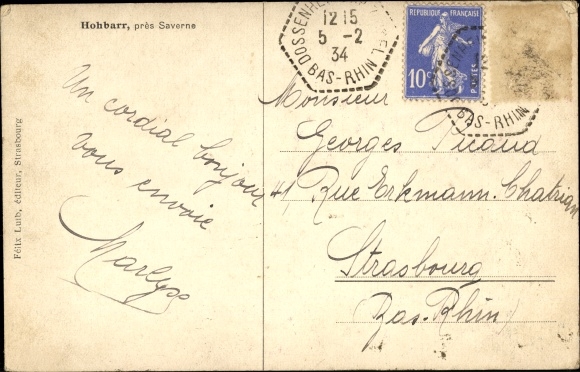 Hohbarr, près Saverne
12 15
5 - 2
34
BAS-RHIN
REPUBLIQUE FRANÇAISE
10c
POSTES
BAS-RHIN
Un cordial bonjour
vous envoie
Marlyse
Monsieur
Georges Picaud
41, Rue Erkmann-Chatrian
Strasbourg
(Bas-Rhin)
Félix Luib, éditeur, Strasbourg